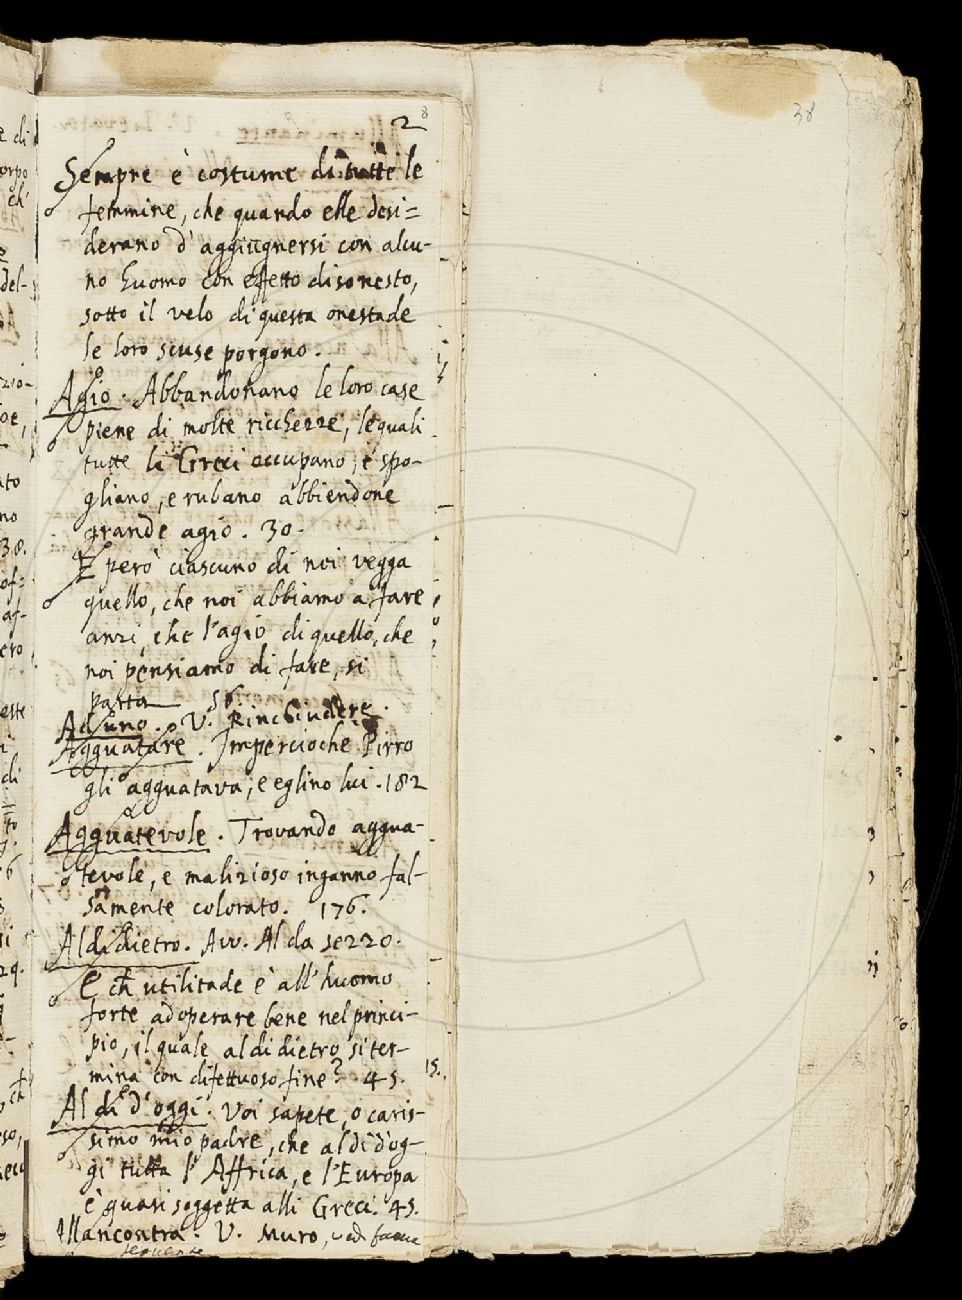 2 8
38
Sempre è costume di tutte le
femmine, che quando elle desi=
derano d'aggiugnersi con alcu-
no huomo con effetto disonesto,
sotto il velo di questa onestade
le loro scuse porgono.
Agio. Abbandonano le loro case
piene di molte ricchezze, le quali
tutte li Greci occupano, e spo-
gliano, e rubano abbiendone
grande agio. 30.
E però ciascuno di noi vegga
quello, che noi abbiamo a fare
anzi, che l'agio di quello, che
noi pensiamo di fare, si
parta 56.
Ad uno. V. Rinchiudere.
Agguatare. Impercioche Pirro
gli agguatava, e eglino lui. 182
Agguatevole. Trovando aggua-
tevole, e malizioso inganno fal-
samente colorato. 176.
Aldidietro. Avv. Al da sezzo.
E ch utilitade è all'huomo
forte adoperare bene nel princi-
pio, il quale aldidietro si ter-
mina con difettuoso fine? 45.
Al dì d'oggi. Voi sapete, o caris-
simo mio padre, che al dì d'og-
gi tutta l'Affrica, e l'Europa
è quasi soggetta alli Greci. 45.
Allancontra. V. Muro,